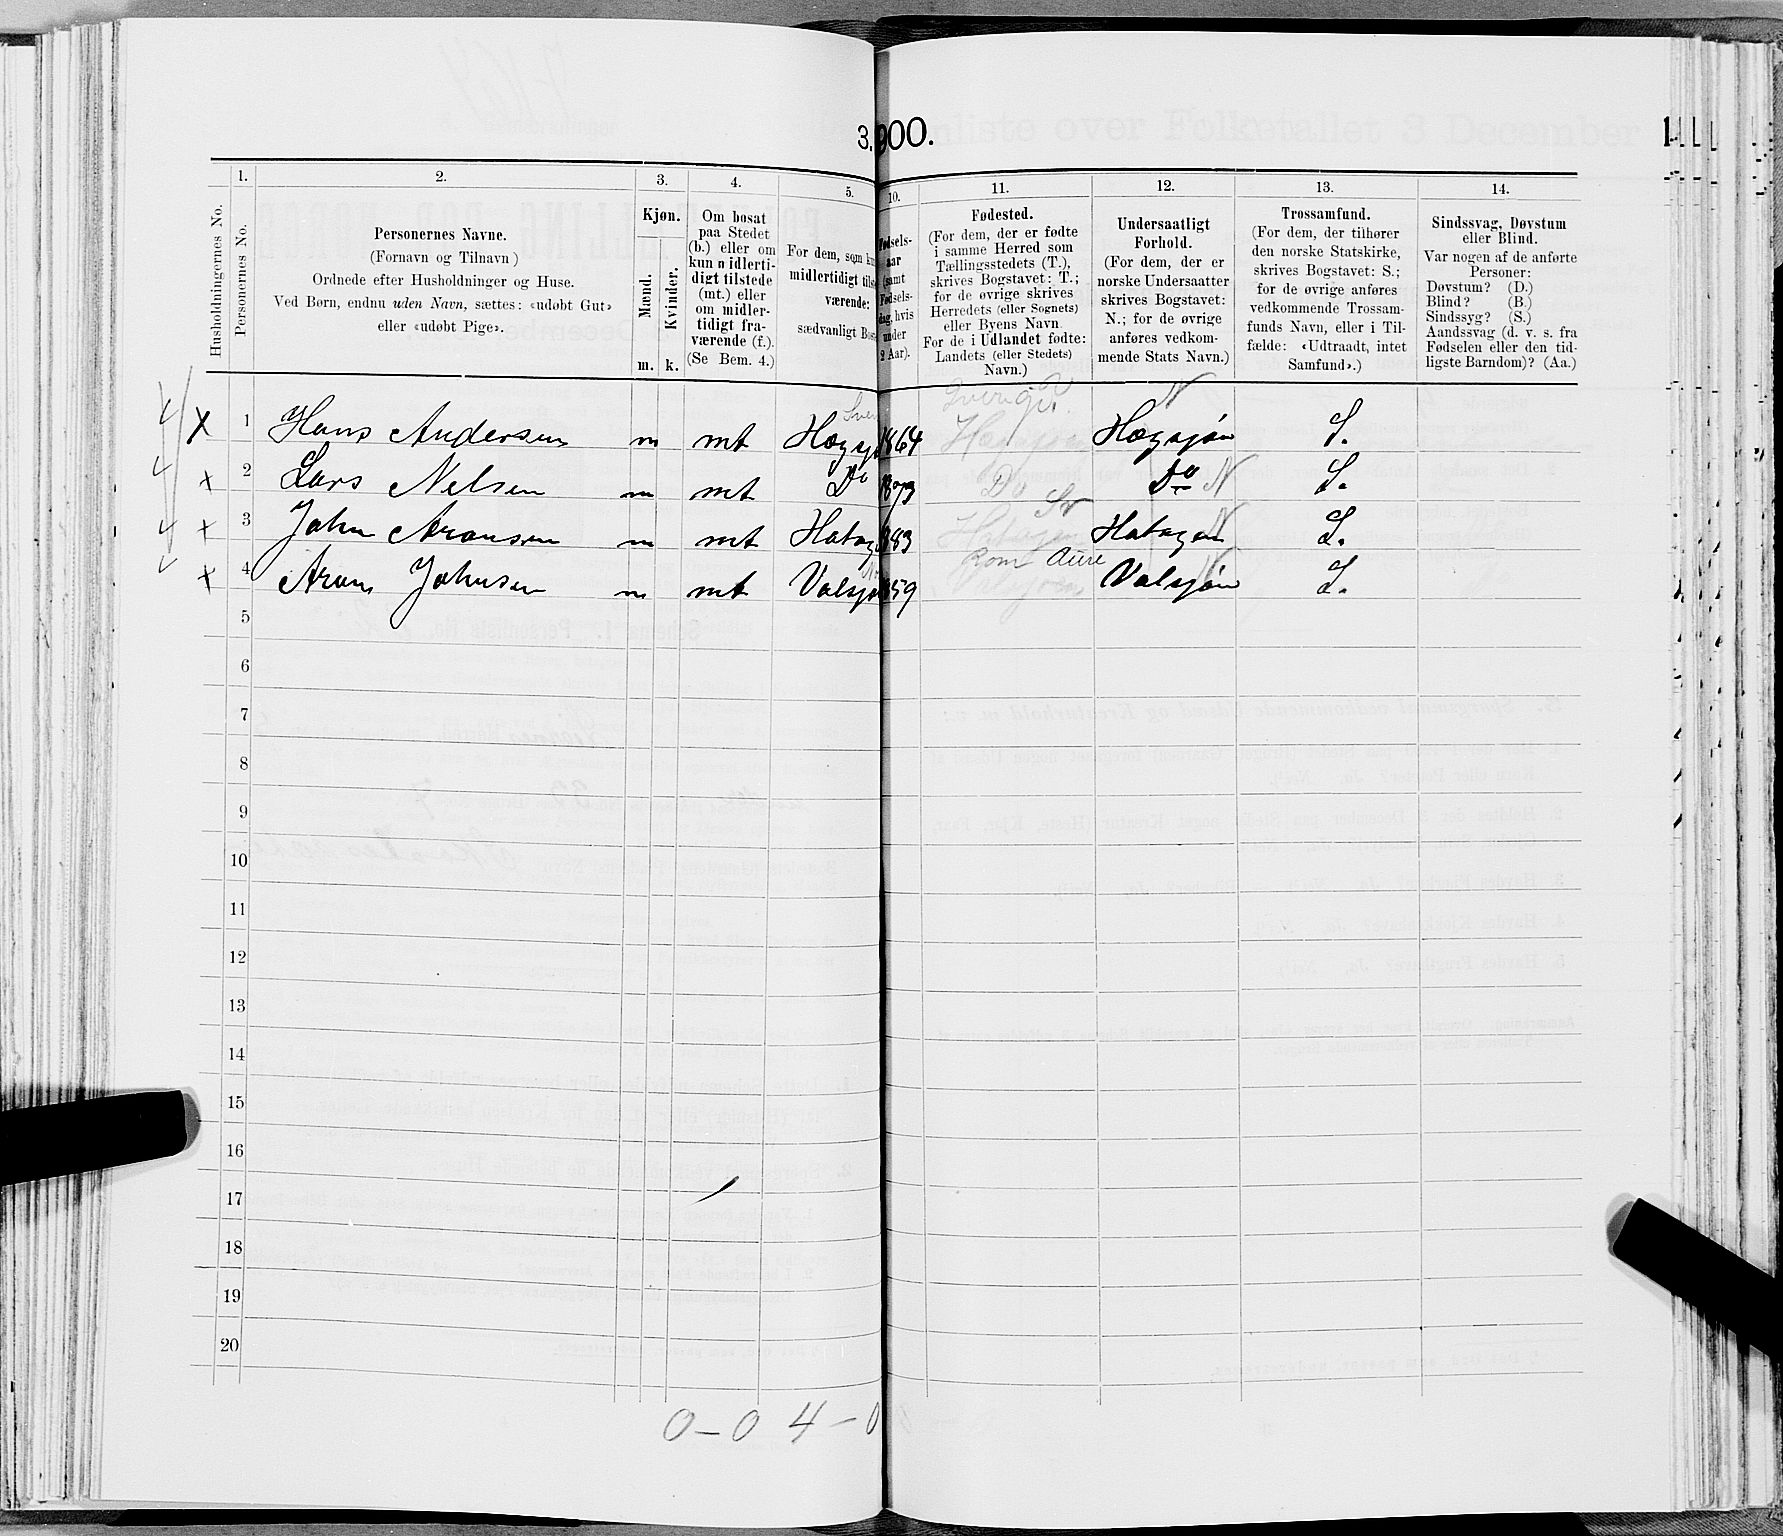 3. 900.
1.
2.
3.
4.
5.
10.
11.
12.
13.
14.
Husholdningernes No.
Personernes No.
Personernes Navne.
(Fornavn og Tilnavn)
Ordnede efter Husholdninger og Huse.
Ved Børn, endnu uden Navn, sættes: «udøbt Gut»
eller «udøbt Pige».
Kjøn.
Mænd.
Kvinder.
m. k.
Om bosat
paa Stedet
(b.) eller om
kun midlerti-
digt tilstede
(mt.) eller
om midler-
tidigt fra-
værende (f.).
(Se Bem. 4.)
For dem, som kun
midlertidigt tilste
værende:
sædvanligt Bos
Fødsels-
aar
(samt
Fødsels-
dag, hvis
under
2 Aar).
Fødested.
(For dem, der er fødte
i samme Herred som
Tællingsstedets (T.),
skrives Bogstavet: T.;
for de øvrige skrives
Herredets (eller Sognets)
eller Byens Navn.
For de i Udlandet fødte:
Landets (eller Stedets)
Navn.)
Undersaatligt
Forhold.
(For dem, der er
norske Undersaatter
skrives Bogstavet:
N.; for de øvrige
anføres vedkom-
mende Stats Navn.)
Trossamfund.
(For dem, der tilhører
den norske Statskirke,
skrives Bogstavet: S.;
for de øvrige anføres
vedkommende Trossam-
funds Navn, eller i Til-
fælde: «Udtraadt, intet
Samfund».)
Sindssvag, Døvstum
eller Blind.
Var nogen af de anførte
Personer:
Døvstum? (D.)
Blind? (B.)
Sindssyg? (S.)
Aandssvag (d. v. s. fra
Fødselen eller den tid-
ligste Barndom)? (Aa.)
Sverige N
x 1 Hans Andersen m mt 1864 S.
x 2 Lars Nelsen m mt Do 1873 Do Do N S.
Sv
x 3 John Aronsen m mt 883 N S.
Rom Aure
x 4 Aron Johnsen m mt Valsjø 859 Valsjøn N S.
5
6
7
8
9
10
11
12
13
14
15
16
17
18
19
20
0 – 0 4 – 0